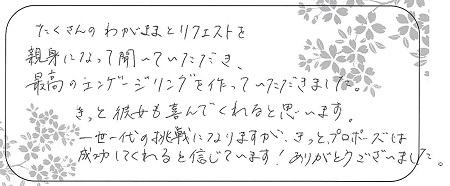 たくさんのわがままとリクエストを
親身になって聞いていただき、
最高のエンゲージリングを作っていただきました。
きっと彼女も喜んでくれると思います。
一世一代の挑戦になりますが、きっとプロポーズは
成功してくれると信じています！ありがとうございました。